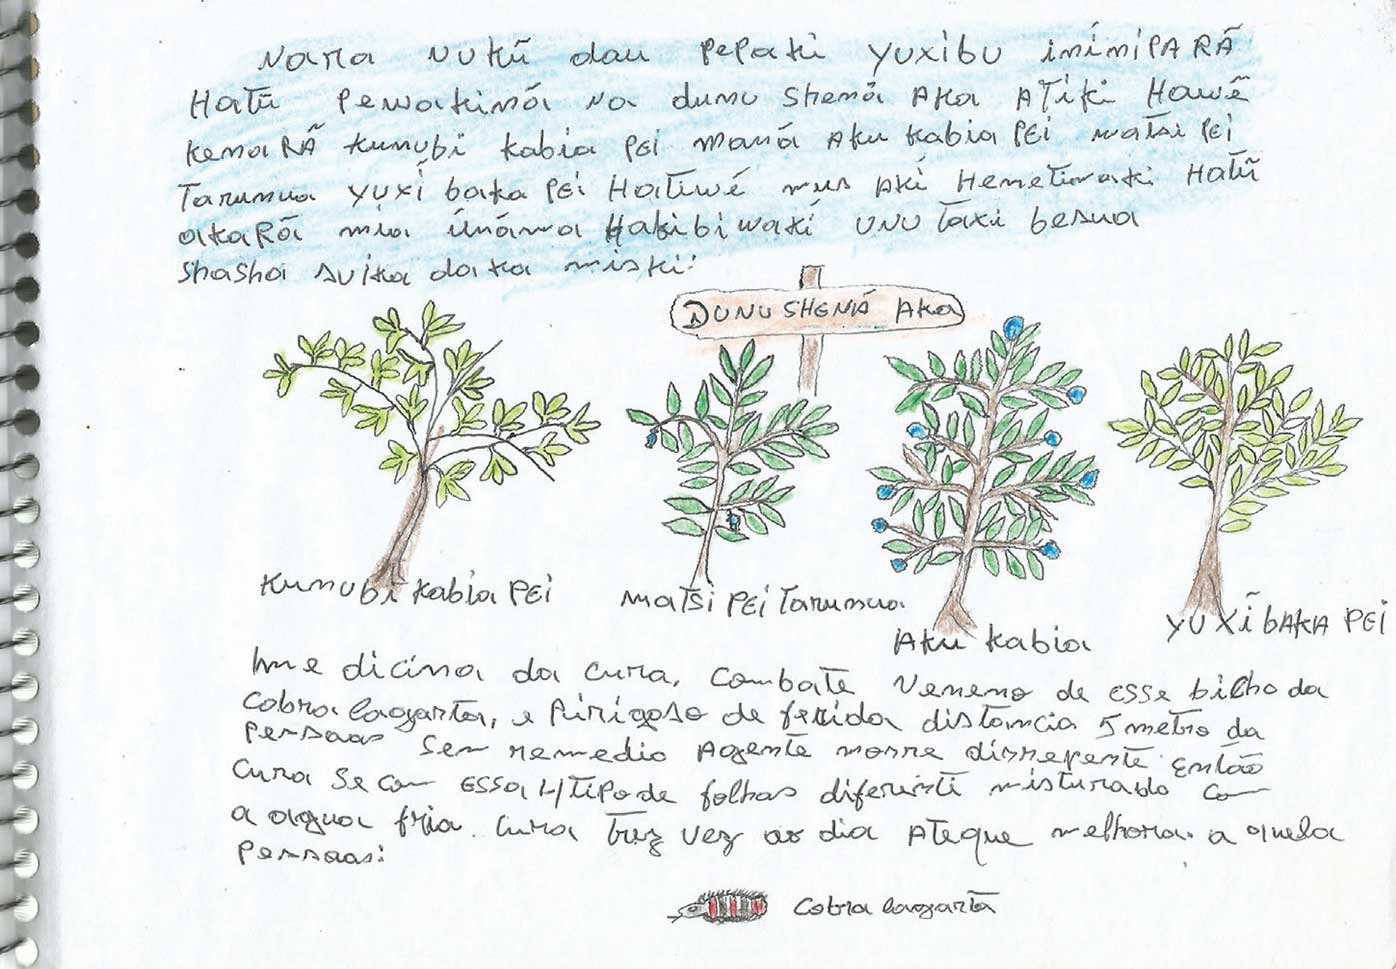 Nara nukũ dau pepaki yuxibu inimiparã
Hatũ pewakimã na dunu shenã aka atiki Hawẽ
kenarã kunubi kabia pei maná aku kabia pei matsi pei
Tarumua yuxĩ baka pei Hatiwé mus aki Henetimaki Hatũ
akarã mia ínánma Hakibiwakí unu taxi besua
shasha suika daka miski:
DUNU SHENÁ AKA
Kunubi kabia pei
matsi pei tarumua
Aku kabia
YUXĨ BAKA PEI
Medicina da cura, combate veneno de esse bilho da
cobra lagarta, e pirigoso de ferida distancia 5 metro da
pessoas sem remedio agente morre dirrepente então
cura se com essa 4/tipo de folhas diferienti misturado com
a agua fria. cura trez vez ao dia ateque melhora a quela
pessoas:
cobra lagarta